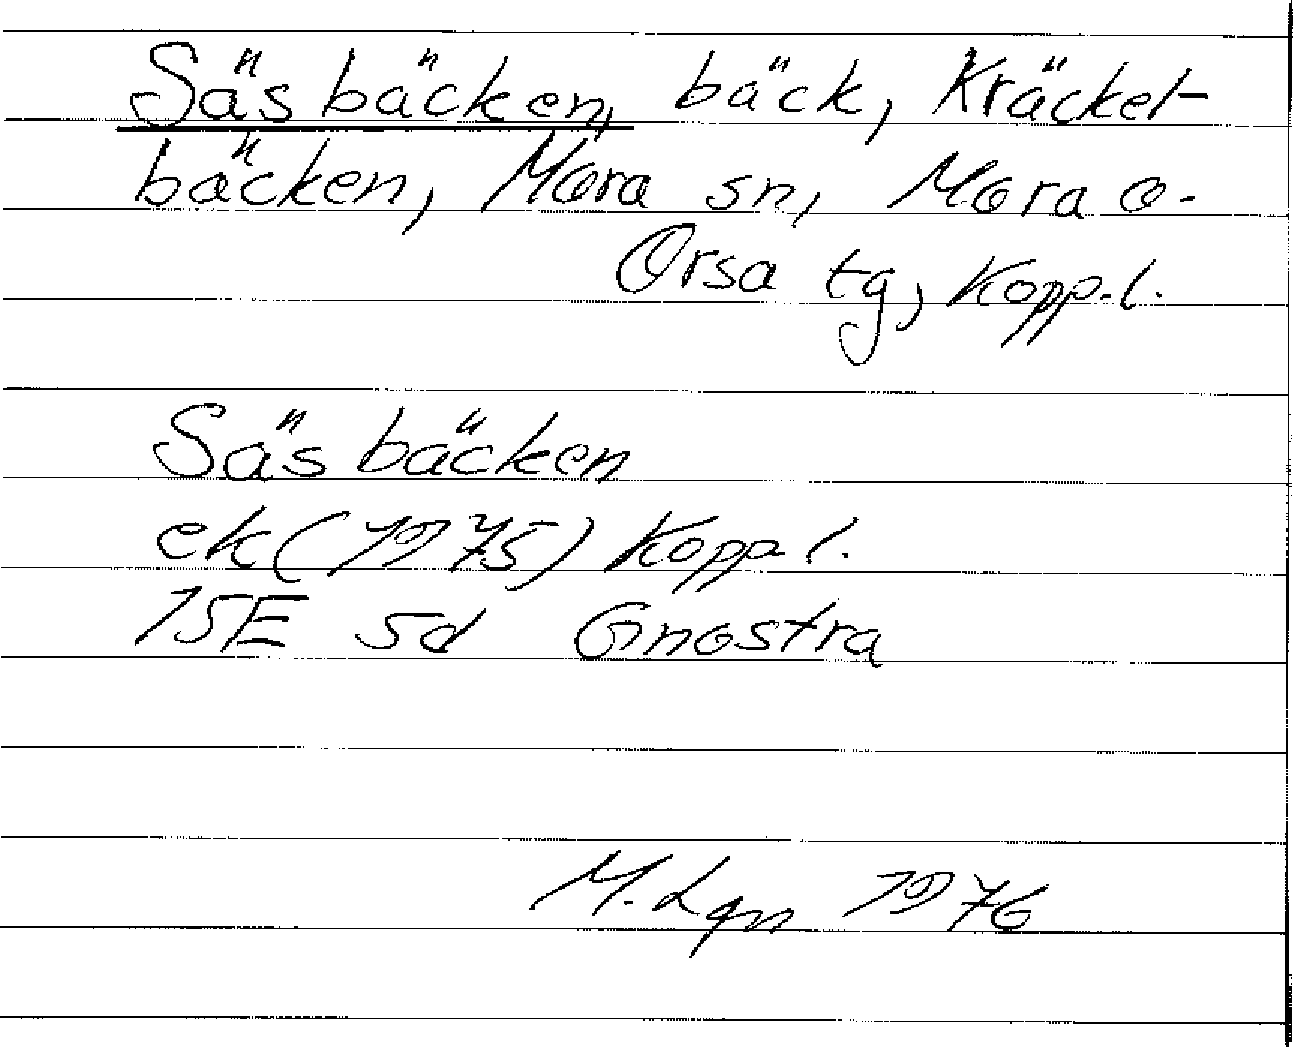 Säsbäcken, bäck, Kräckel-
bäcken, Mora sn, Mora o.
Orsa tg, Kopp.l.
Säsbäcken
ek (1975) Kopp l.
15E 5d Gnostra
M. Lgn 1976